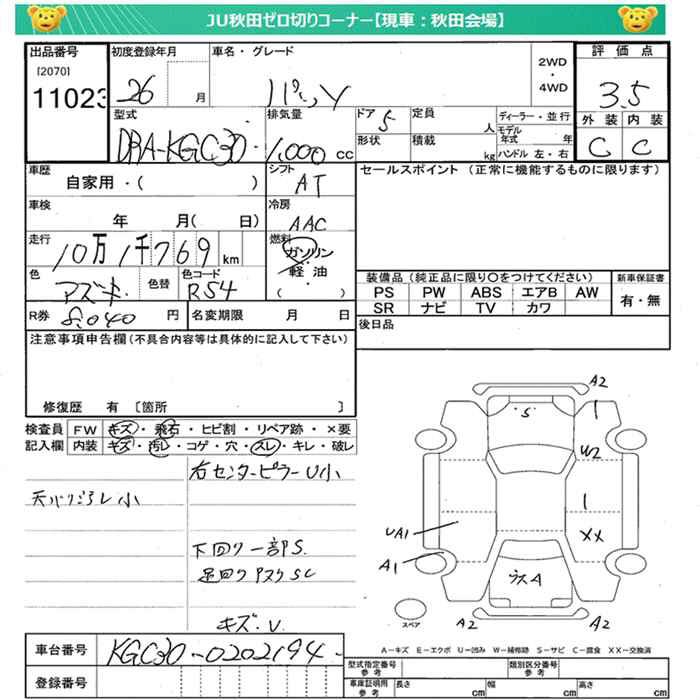 JU秋田ゼロ切りコーナー【現車：秋田会場】
出品番号
[2070]
11023
初度登録年月
26 月
車名・グレード
パッソ
2WD
・
4WD
評価点
3.5
外装 内装
C C
型式
DBA-KGC30
排気量
1,000 cc
ドア
5
形状
定員
人
積載
kg
ディーラー・並行
モデル
年式 年
ハンドル 左・右
車歴
自家用・( )
シフト
AT
車検
年 月( 日)
冷房
AAC
走行
10万1千769 km
燃料
ガソリン
・
軽油
( )
色
色替
色コード
R54
R券
8,040 円
名変期限 月 日
セールスポイント(正常に機能するものに限ります)
装備品(純正品に限り〇をつけてください)
PS PW ABS エアB AW
SR ナビ TV カワ
新車保証書
有・無
後日品
注意事項申告欄(不具合内容等は具体的に記入して下さい)
修復歴 有 〔箇所 〕
検査員 FW キズ・飛石・ヒビ割・リペア跡・×要
記入欄 内装 キズ・汚レ・コゲ・穴・スレ・キレ・破レ
右センターピラーU小
天バリヨゴレ小
下回り一部S.
足回りアスクSC
キズ.U.
A2
S
W2
XX
UA1
A1
A2
A2
スペア
A－キズ E－エクボ U－凹み W－補修跡 S－サビ C－腐食 XX－交換済
車台番号
KGC30-0202194-
登録番号
型式指定番号
参考
類別区分番号
参考
車庫証明用
参考
長さ cm
幅 cm
高さ cm